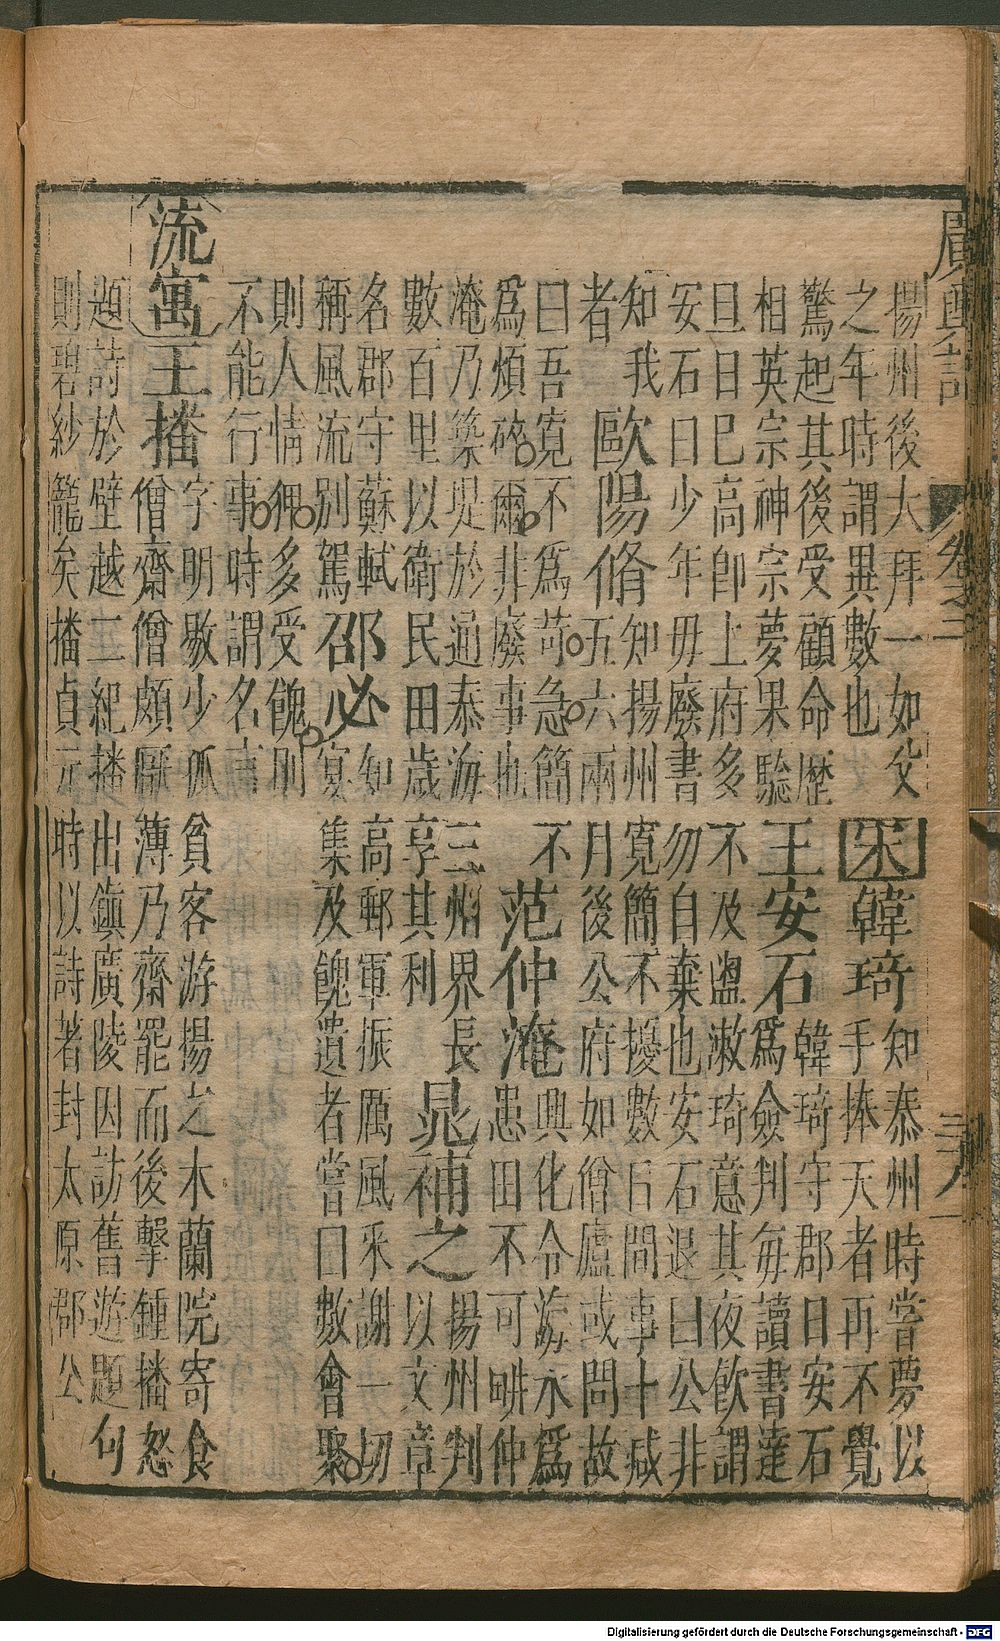 廣輿記 卷之三 三八
揚州後大拜一如父
之年時謂異數也
宋 韓琦
知泰州時嘗夢以
手捧天者再不覺
驚起其後受顧命歷
相英宗神宗夢果驗
王安石
韓琦守郡日安石
爲僉判每讀書達
旦日已高卽上府多不及盥漱琦意其夜飲謂
安石曰少年毋廢書勿自棄也安石退曰公非
知我
者
歐陽脩
知揚州寬簡不擾數日間事十減
五六兩月後公府如僧廬或問故
曰吾寬不爲苛急簡不
爲煩碎爾非廢事也
范仲淹
興化令海水爲
患田不可畊仲
淹乃築堤於通泰海三州界長
數百里以衛民田歲享其利
晁補之
揚州判
以文章
名郡守蘇軾
稱風流別駕
邵必
知高郵軍振厲風采謝一切
宴集及餽遺者嘗曰數會聚
則人情狎多受餽則
不能行事時謂名言
流寓
王播
字明敭少孤貧客游揚之木蘭院寄食
僧齋僧頗厭薄乃齋罷而後擊鍾播怒
題詩於壁越二紀播出鎮廣陵因訪舊遊題句
則碧紗籠矣播貞元時以詩著封太原郡公
Digitalisierung gefördert durch die Deutsche Forschungsgemeinschaft - DFG